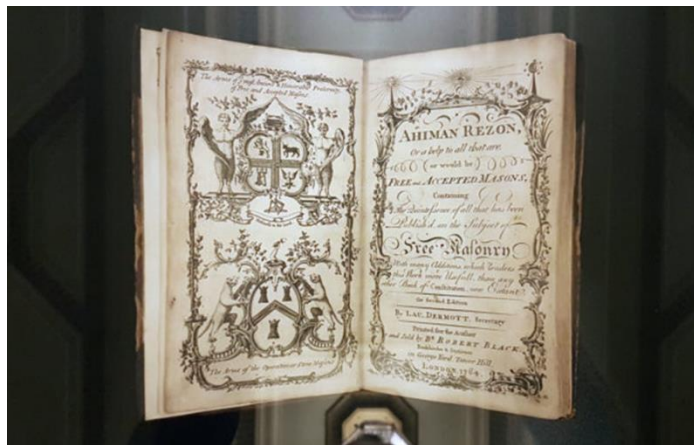 The Arms of ye most Ancient & Honorable Fraternity,
of Free and Accepted Masons
The Arms of the Operative or Stone Masons
AHIMAN REZON,
Or a help to all that are,
or would be
FREE and ACCEPTED MASONS,
Containing
The Quintessence of all that has been
Publish'd on the Subject of
Free Masonry
With many Additions, which Renders
this Work more Usefull, than any
other Book of Constitution, now Extant.
The Second Edition
By LAU. DERMOTT, Secretary
Printed for the Author
and Sold by Br. ROBERT BLACK,
Bookbinder & Stationer
in George Yard, Tower Hill,
LONDON, 1764.